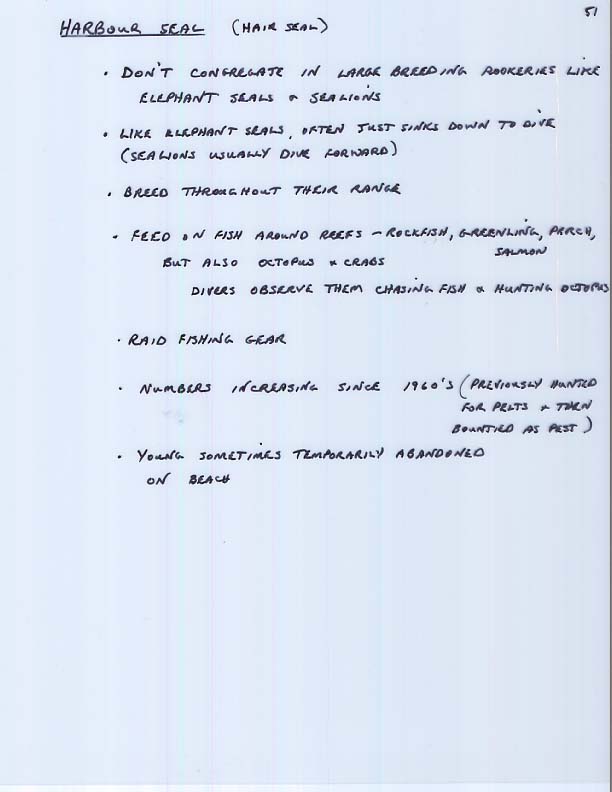 51
HARBOUR SEAL (HAIR SEAL)
• DON'T CONGREGATE IN LARGE BREEDING ROOKERIES LIKE
ELEPHANT SEALS & SEALIONS
• LIKE ELEPHANT SEALS, OFTEN JUST SINKS DOWN TO DIVE
(SEALIONS USUALLY DIVE FORWARD)
• BREED THROUGHOUT THEIR RANGE
• FEED ON FISH AROUND REEFS - ROCKFISH, GREENLING, PERCH,
SALMON
BUT ALSO OCTOPUS & CRABS
DIVERS OBSERVE THEM CHASING FISH & HUNTING OCTOPUS
• RAID FISHING GEAR
• NUMBERS INCREASING SINCE 1960'S (PREVIOUSLY HUNTED
FOR PELTS & THEN
BOUNTIED AS PEST)
• YOUNG SOMETIMES TEMPORARILY ABANDONED
ON BEACH